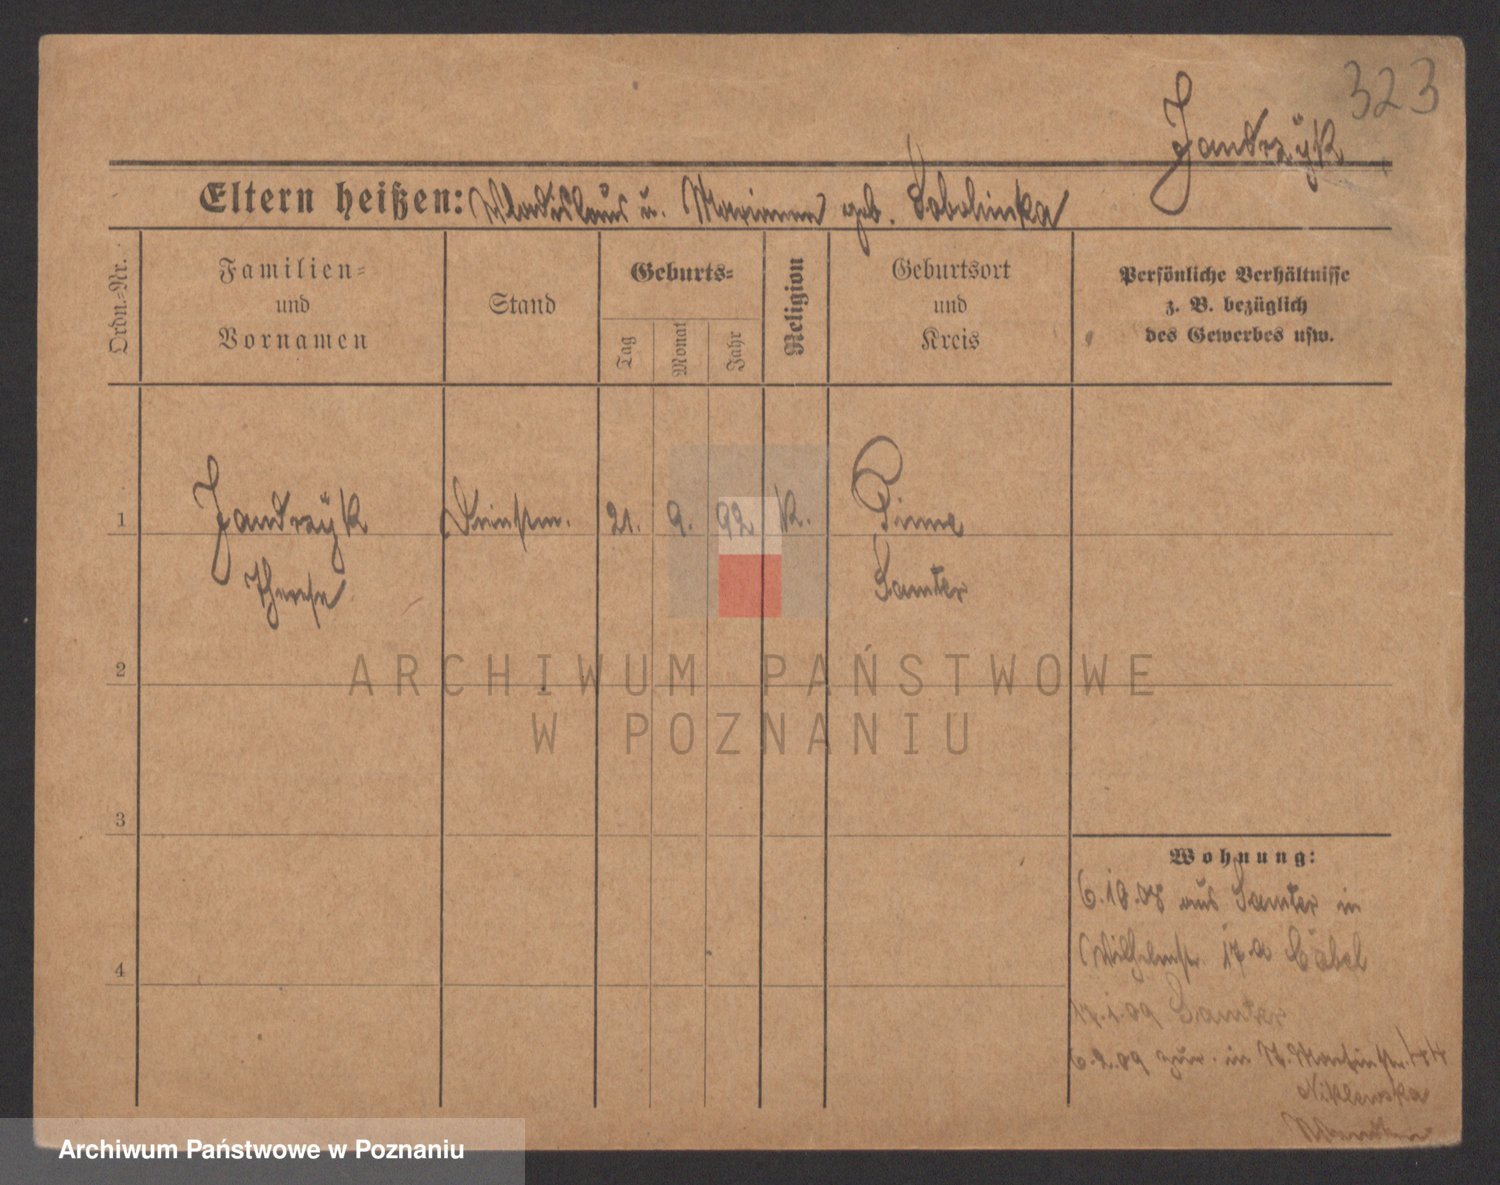 323
Jandrzÿk
Eltern heißen: Wladislaus u. Marianna geb. Sobolinska
Ordn.-Nr.
Familien-
und
Vornamen
Stand
Geburts-
Tag
Monat
Jahr
Religion
Geburtsort
und
Kreis
Persönliche Verhältnisse
z. B. bezüglich
des Gewerbes usw.
1
Jandrzÿk
Therese
Dienstm.
21.
9.
92
K.
Pinne
Samter
2
3
4
Wohnung:
6.10.08 aus Samter in
Wilhelmstr. 17a
17.1.09 Samter
6.2.09 zur. in St. Martinstr.
Niklewska
ARCHIWUM PAŃSTWOWE
W POZNANIU
Archiwum Państwowe w Poznaniu